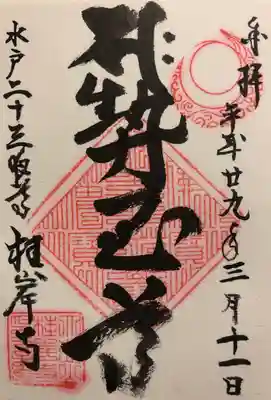 奉拝 平成廿九年三月十一日
勢至尊
水戸二十三夜尊 桂岸寺